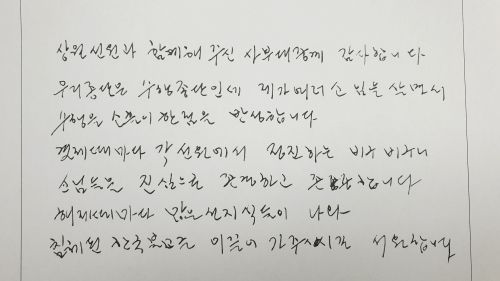 상월선원과 함께해 주신 사부대중께 감사합니다
우리종단은 수행종단인데 제가 머리 스님을 살면서
수행을 소홀이 한 점을 반성합니다
결제때마다 각 선원에서 정진하는 비구 비구니
스님들을 진심으로 존경하고
해제때마다 많은 선지식들이 나와
침체된 한국불교를 이끌어 가주시길 서원합니다